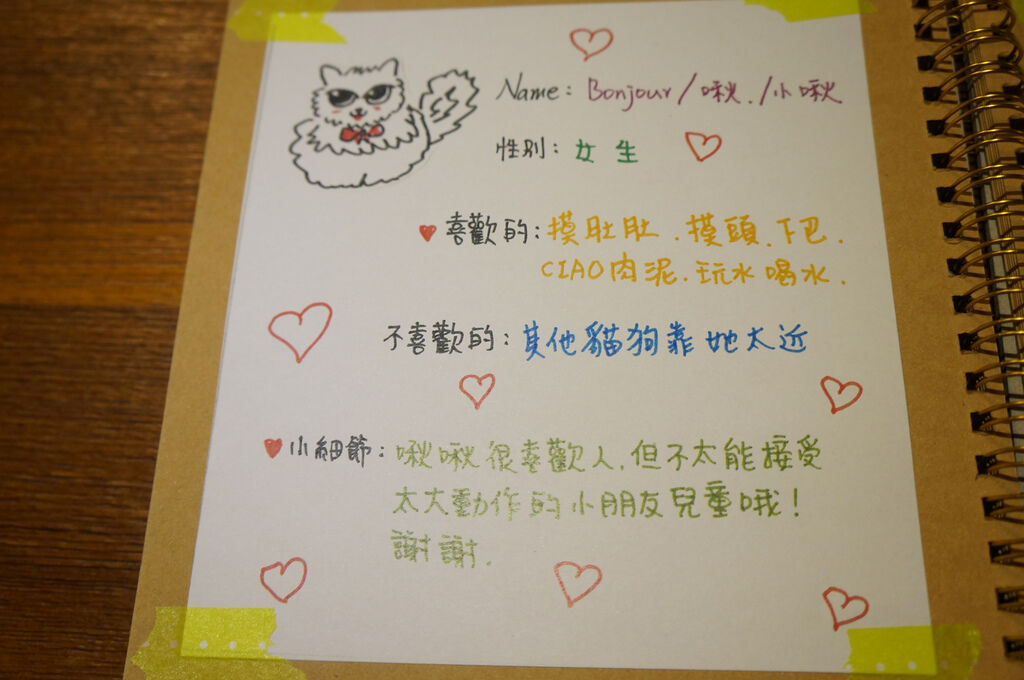 Name: Bonjour/啾./小啾
性別: 女生
喜歡的: 摸肚肚.摸頭.下巴.
CIAO肉泥.玩水喝水.
不喜歡的: 其他貓狗靠她太近
小細節: 啾啾很喜歡人.但不太能接受
太大動作的小朋友兒童哦!
謝謝.